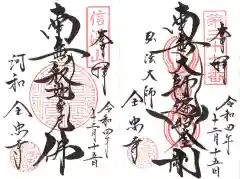 奉拝
南無釈迦牟尼佛
令和四年
十二月十五日
河和
全忠寺
奉拝
南無大師遍照金剛
弘法大師
令和四年
十二月十五日
全忠寺